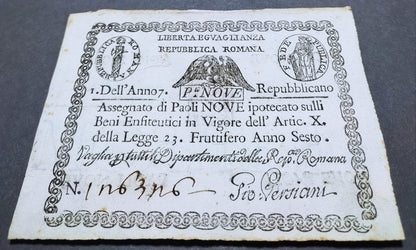 LIBERTA EGVAGLIANZA
REPUBBLICA ROMANA.
REPUBBLICA ROMANA
FEDE PUBBLICA
1. Dell'Anno 7. P.li NOVE Repubblicano
Assegnato di Paoli NOVE ipotecato sulli
Beni Enfiteutici in Vigore dell'Artic. X.
della Legge 23. Fruttifero Anno Sesto.
Vaglia p tutti li Dipartimenti delle Romana
N. Gio. Persiani